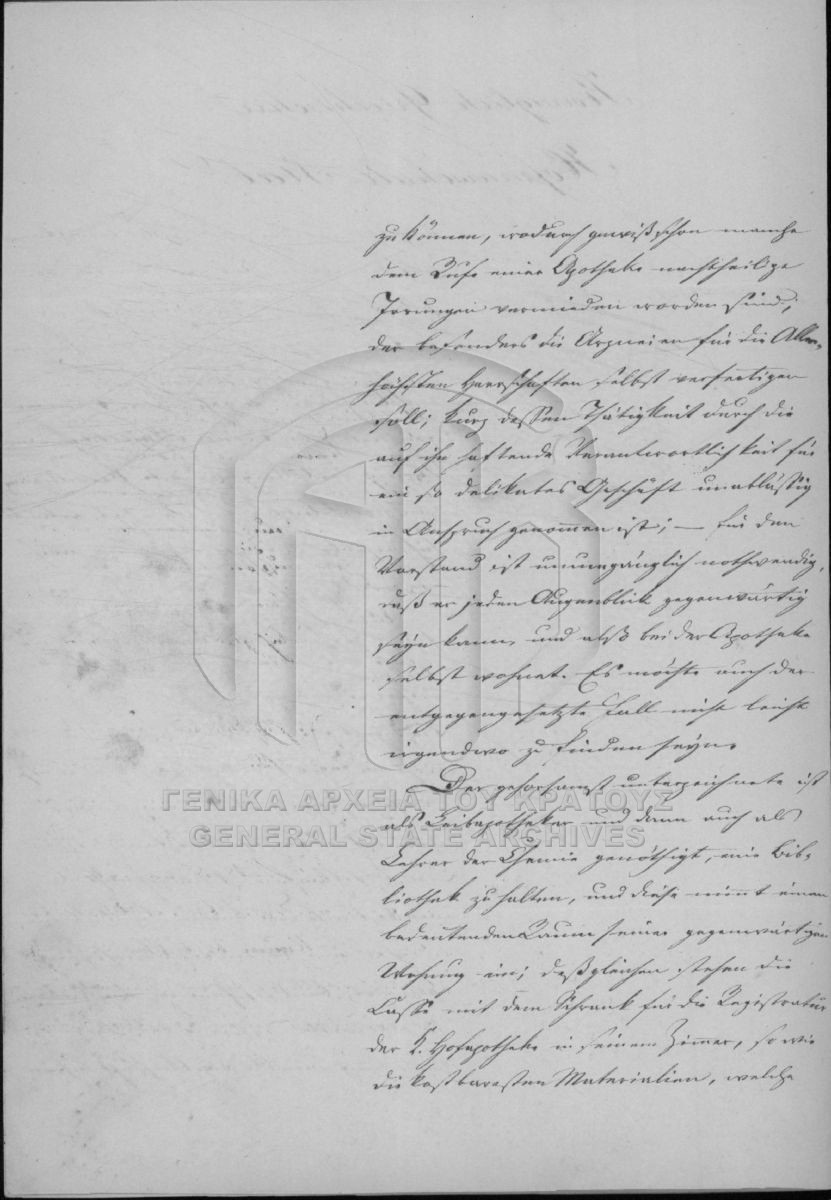 zu können, wodurch gewiß schon manche
dem Rufe einer Apotheke nachtheilige
Irrungen vermieden worden sind;
der besonders die Arzneien für die Aller-
höchsten Herrschaften selbst verfertigen
soll; kurz dessen Thätigkeit durch die
auf ihn haftende Verantwortlichkeit für
ein so delikates Geschäft unabläßig
in Anspruch genommen ist; — für den
Vorstand ist unumgänglich nothwendig,
daß er jeden Augenblick gegenwärtig
seyn kann, und also bei der Apotheke
selbst wohnet. Es möchte auch der
entgegengesetzte Fall nicht leicht
irgendwo zu finden seyn.
Der gehorsamst unterzeichnete ist
als Leibapotheker und dann auch als
Lehrer der Chemie genöthigt, eine Bib-
liothek zu halten, und diese nimmt einen
bedeutenden Raum seiner gegenwärtigen
Wohnung ein; deßgleichen stehen die
Casse mit dem Schrank für die Registratur
der K. Hofapotheke in seinem Zimmer, so wie
die kostbaresten Materialien, welche
ΓΕΝΙΚΑ ΑΡΧΕΙΑ ΤΟΥ ΚΡΑΤΟΥΣ
GENERAL STATE ARCHIVES